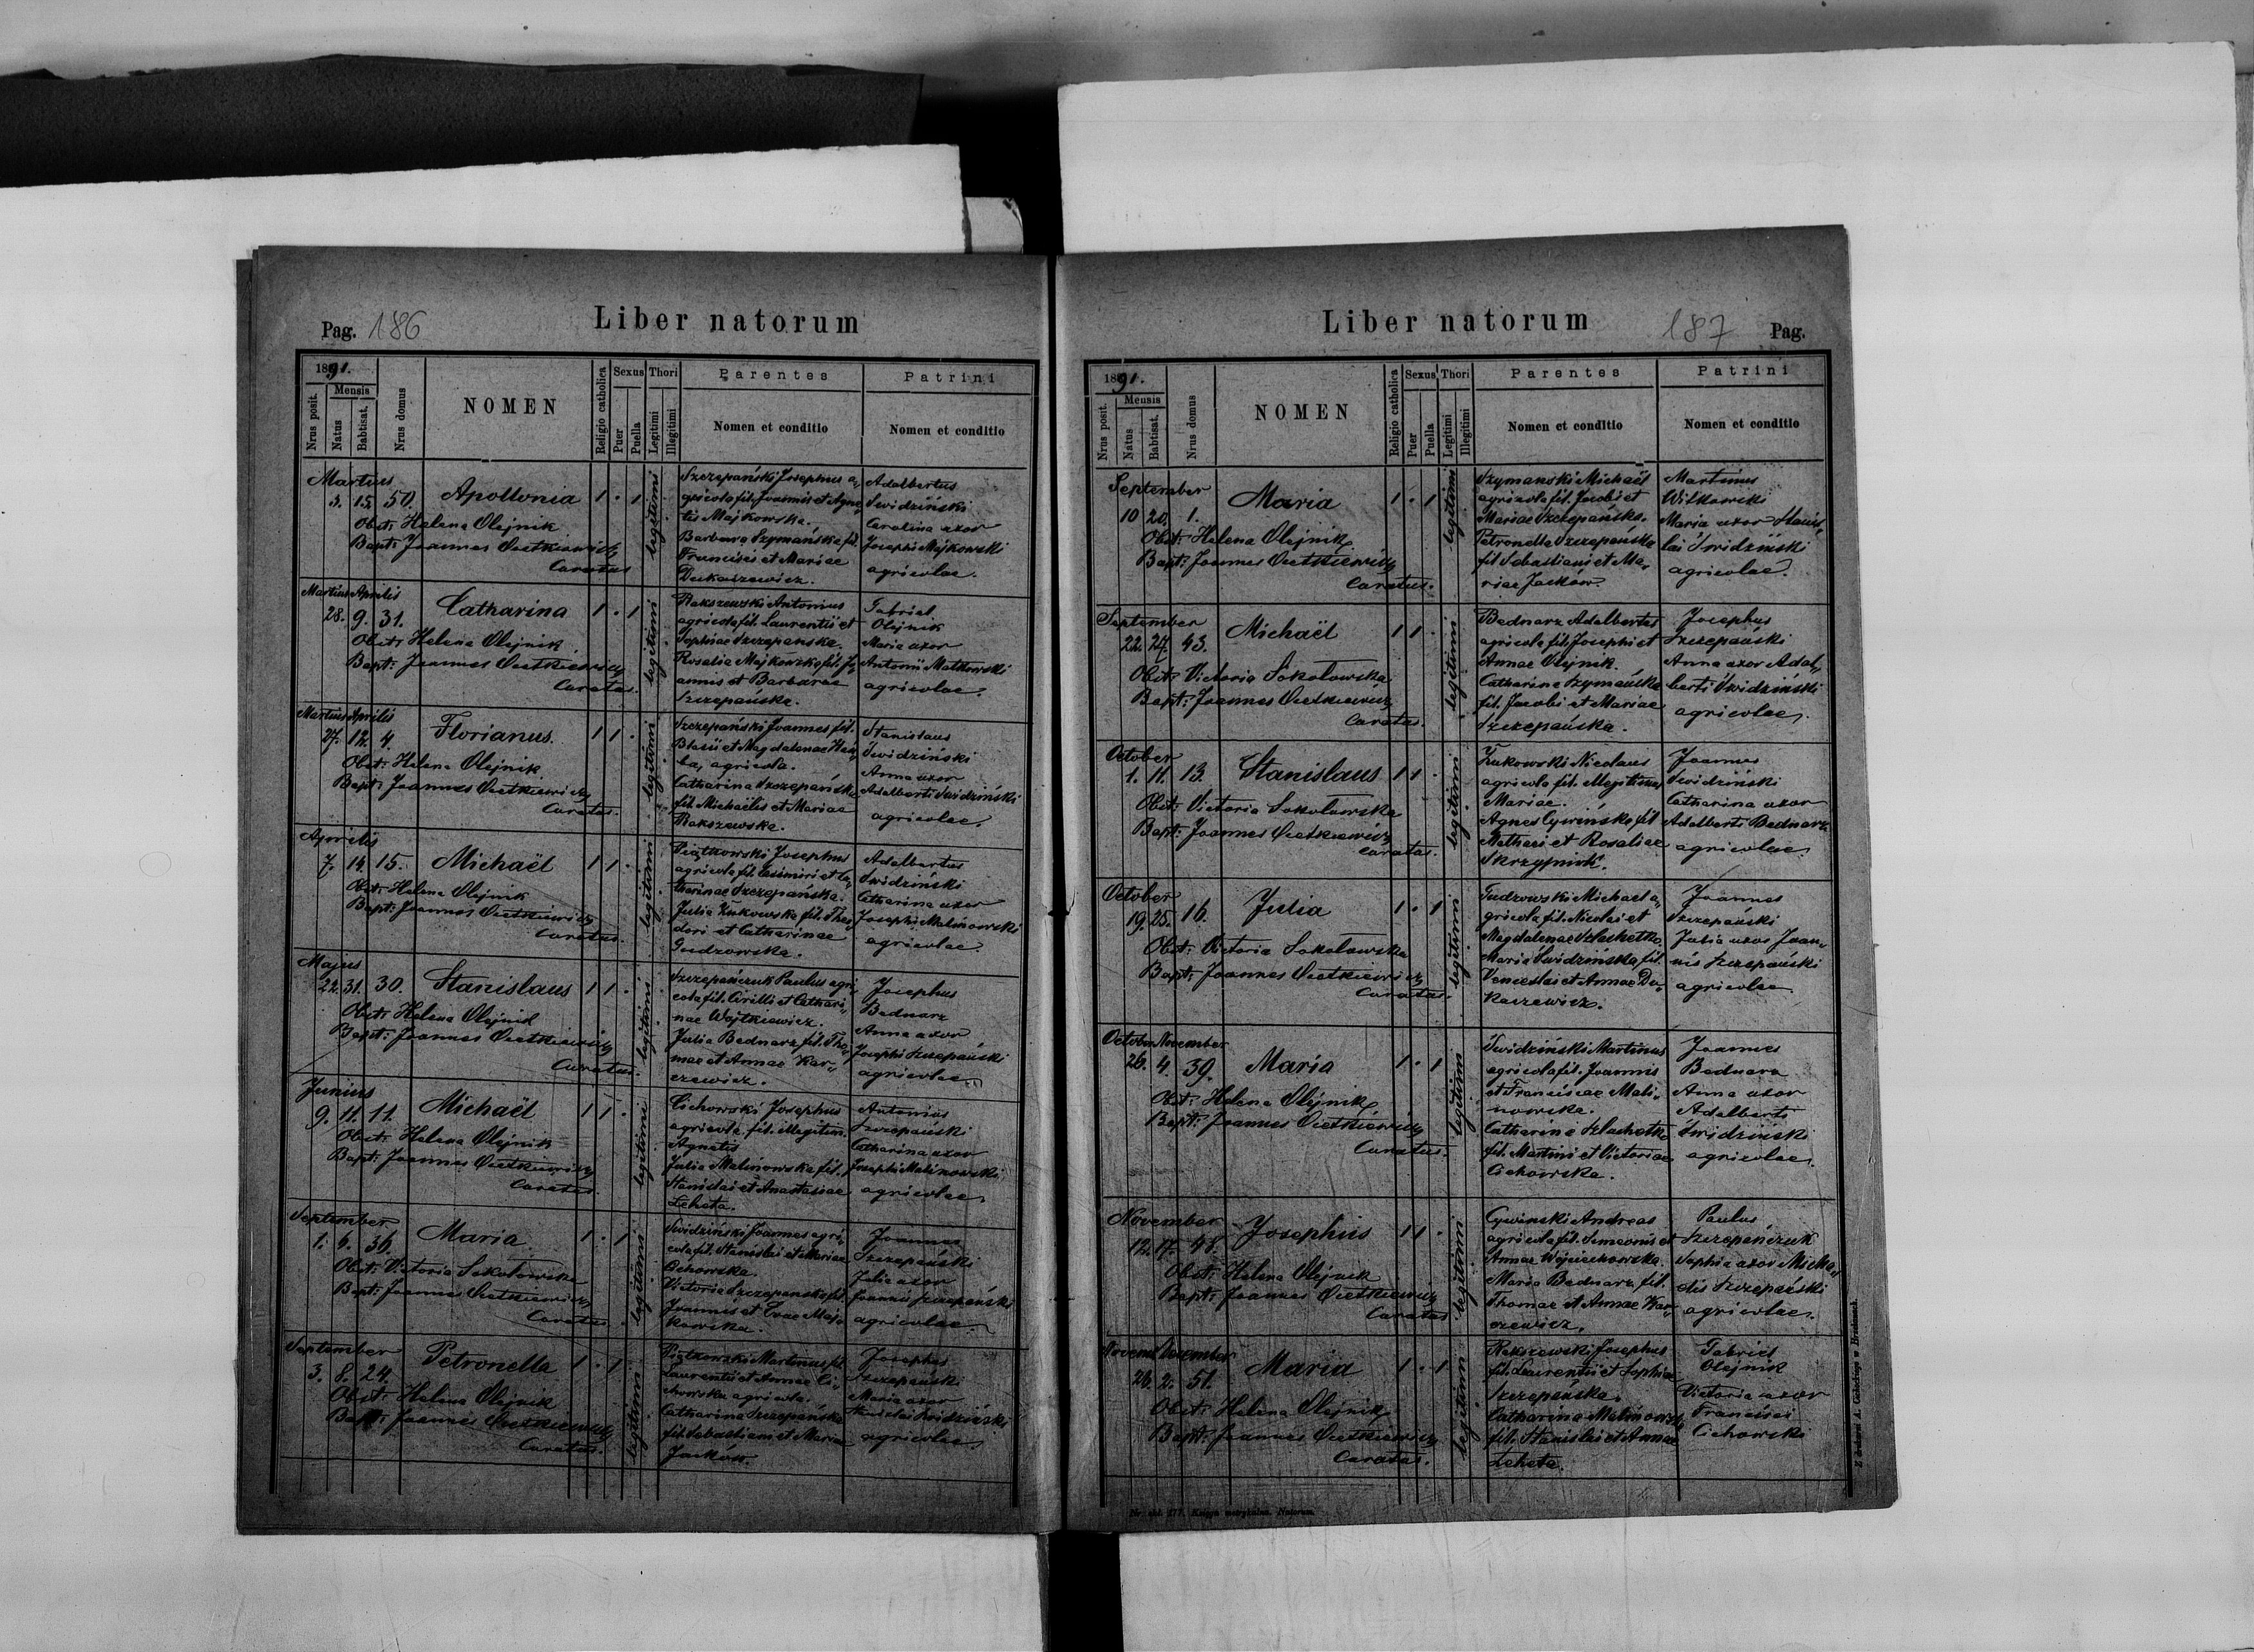 Pag. 186
Liber natorum
1891.
Nrus posit.
Mensis
Natus
Babtisat.
Nrus domus
NOMEN
Religio catholica
Sexus
Puer
Puella
Thori
Legitimi
Illegitimi
Parentes
Nomen et conditio
Patrini
Nomen et conditio
Martius
3. 15. 50. Apollonia 1 . 1 legitimi
Obst: Helena Olejnik
Bapt: Joannes
Curatus
Szczepański Josephus a„
gricola fil. Joannis et Agne„
tis Majkowska.
Barbara Szymańska fil.
Francisci et Mariae
Dukaszewicz.
Adalbertus
Świdziński
Carolina uxor
Josephi Majkowski
agricolae.
Martius Aprilis
28. 9. 31. Catharina 1 . 1 legitimi
Obst: Helena Olejnik
Bapt: Joannes
Curatus.
Rakszewski Antonius
agricola fil. Laurentii et
Sophiae Szczepańska.
Rosalia Majkowska fil. Jo
annis et Barbarae
Szczepańska.
Gabriel
Olejnik
Maria uxor
Antonii Malkowski
agricolae.
Martius Aprilis
27. 12. 4. Florianus. 1 1 . legitimi
Obst: Helena Olejnik
Bapt: Joannes
Curatus.
Szczepański Joannes fil.
Blasii et Magdalenae
agricola.
Catharina Szczepańska
fil. Michaëlis et Mariae
Rakszewska.
Stanislaus
Świdziński
Anna uxor
Adalberti Świdziński
agricolae.
Aprilis
7. 14. 15. Michaël 1 1 . legitimi
Obst: Helena Olejnik
Bapt: Joannes
Curatus.
Piątkowski Josephus
agricola fil. Casimiri et Ca„
tharinae Szczepańska.
Julia Żukowska fil. Theo
dori et Catharinae
Gudzowska.
Adalbertus
Świdziński
Catharina uxor
Josephi Malinowski
agricolae.
Majus
22. 31. 30. Stanislaus 1 1 . legitimi
Obst: Helena Olejnik
Bapt: Joannes
Curatus.
Szczepańczuk Paulus agri
cola fil. Cirilli et Cathari„
nae Wojtkiewicz.
Julia Bednarz fil. Tho„
mae et Annae Kar„
czewicz.
Josephus
Bednarz
Anna uxor
Josephi Szczepański
agricolae
Junius
9. 11. 11. Michaël 1 1 . legitimi
Obst: Helena Olejnik
Bapt: Joannes
Curatus.
Cichowski Josephus
agricola fil. illegitim.
Agnetis
Julia Malinowska fil.
Stanislai et Anastasiae
Leheta.
Antonius
Szczepański
Catharina uxor
Josephi Malinowski
agricolae.
September
1. 6. 36. Maria. 1 . 1 legitimi
Obst: Victoria Sokołowska
Bapt: Joannes
Curatus.
Świdziński Joannes agri„
cola fil. Stanislai et Mariae
Cichowska.
Victoria Szczepańska fil.
Joannis et Evae Maj„
kowska.
Joannes
Szczepański
Julia uxor
Joannis Szczepański
agricolae.
September
3. 8. 24. Petronella 1 . 1 legitimi
Obst: Helena Olejnik
Bapt: Joannes
Curatus.
Piątkowski Martinus fil.
Laurentii et Annae Ci„
chowska agricola.
Catharina Szczepańska
fil. Sebastiani et Mariae
Jacków.
Josephus
Szczepański
Maria uxor
Stanislai Świdziński
agricolae
Liber natorum
187 Pag.
1891.
Nrus posit.
Mensis
Natus
Babtisat.
Nrus domus
NOMEN
Religio catholica
Sexus
Puer
Puella
Thori
Legitimi
Illegitimi
Parentes
Nomen et conditio
Patrini
Nomen et conditio
September
10 20. 1. Maria 1 . 1 legitimi
Obst: Helena Olejnik
Bapt: Joannes
Curatus.
Szymanski Michaël
agricola fil. Jacobi et
Mariae Szczepańska.
Petronella Szczepańska
fil. Sebastiani et Ma„
riae Jacków.
Martinus
Witkowski
Maria uxor Stanis„
lai Świdziński
agricolae.
September
22. 27. 43. Michaël 1 1 . legitimi
Obst: Victoria Sokołowska
Bapt: Joannes
Curatus.
Bednarz Adalbertus
agricola fil. Josephi et
Annae Olejnik.
Catharina Szymańska
fil. Jacobi et Mariae
Szczepańska.
Josephus
Szczepański
Anna uxor Adal„
berti Świdziński
agricolae.
October
1. 11. 13. Stanislaus 1 1 . legitimi
Obst: Victoria Sokołowska
Bapt: Joannes
Curatus.
Żukowski Nicolaus
agricola fil. illegitimus
Mariae.
Agnes Cywińska fil.
Mathaei et Rosaliae
Joannes
Świdziński
Catharina uxor
Adalberti Bednarz
agricolae.
October
19. 25. 16. Julia 1 . 1 legitimi
Obst: Victoria Sokołowska
Bapt: Joannes
Curatus.
Gudzowski Michael a„
gricola fil. Nicolai et
Magdalenae Szlachetko.
Maria Świdzińska fil.
Venceslai et Annae Du„
kaszewicz.
Joannes
Szczepański
Julia uxor Joan„
nis Szczepański
agricolae.
October November
26. 4. 39. Maria 1 . 1 legitimi
Obst: Helena Olejnik
Bapt: Joannes
Curatus.
Świdziński Martinus
agricola fil. Joannis
et Franciscae Mali„
nowska.
Catharina Szlachetko
fil. Martini et Victoriae
Cichowska.
Joannes
Bednarz
Anna uxor
Adalberti
Świdziński
agricolae.
November
12. 17. 48. Josephus 1 1 . legitimi
Obst: Helena Olejnik
Bapt: Joannes
Curatus
Cywinski Andreas
agricola fil. Simeonis et
Annae Wojciechowska.
Maria Bednarz fil.
Thomae et Annae Kar„
czewicz.
Paulus
Szczepańczuk
Sophia uxor Micha„
elis Szczepański
agricolae.
Novem December
26. 2. 51. Maria 1 . 1 legitimi
Obst: Helena Olejnik
Bapt: Joannes
Curatus.
Rakszewski Josephus
fil. Laurentii et Sophiae
Szczepańska.
Catharina Malinows.
fil. Stanislai et Annae
Leheta.
Gabriel
Olejnik
Victoria uxor
Francisci
Cichowski
Natorum.